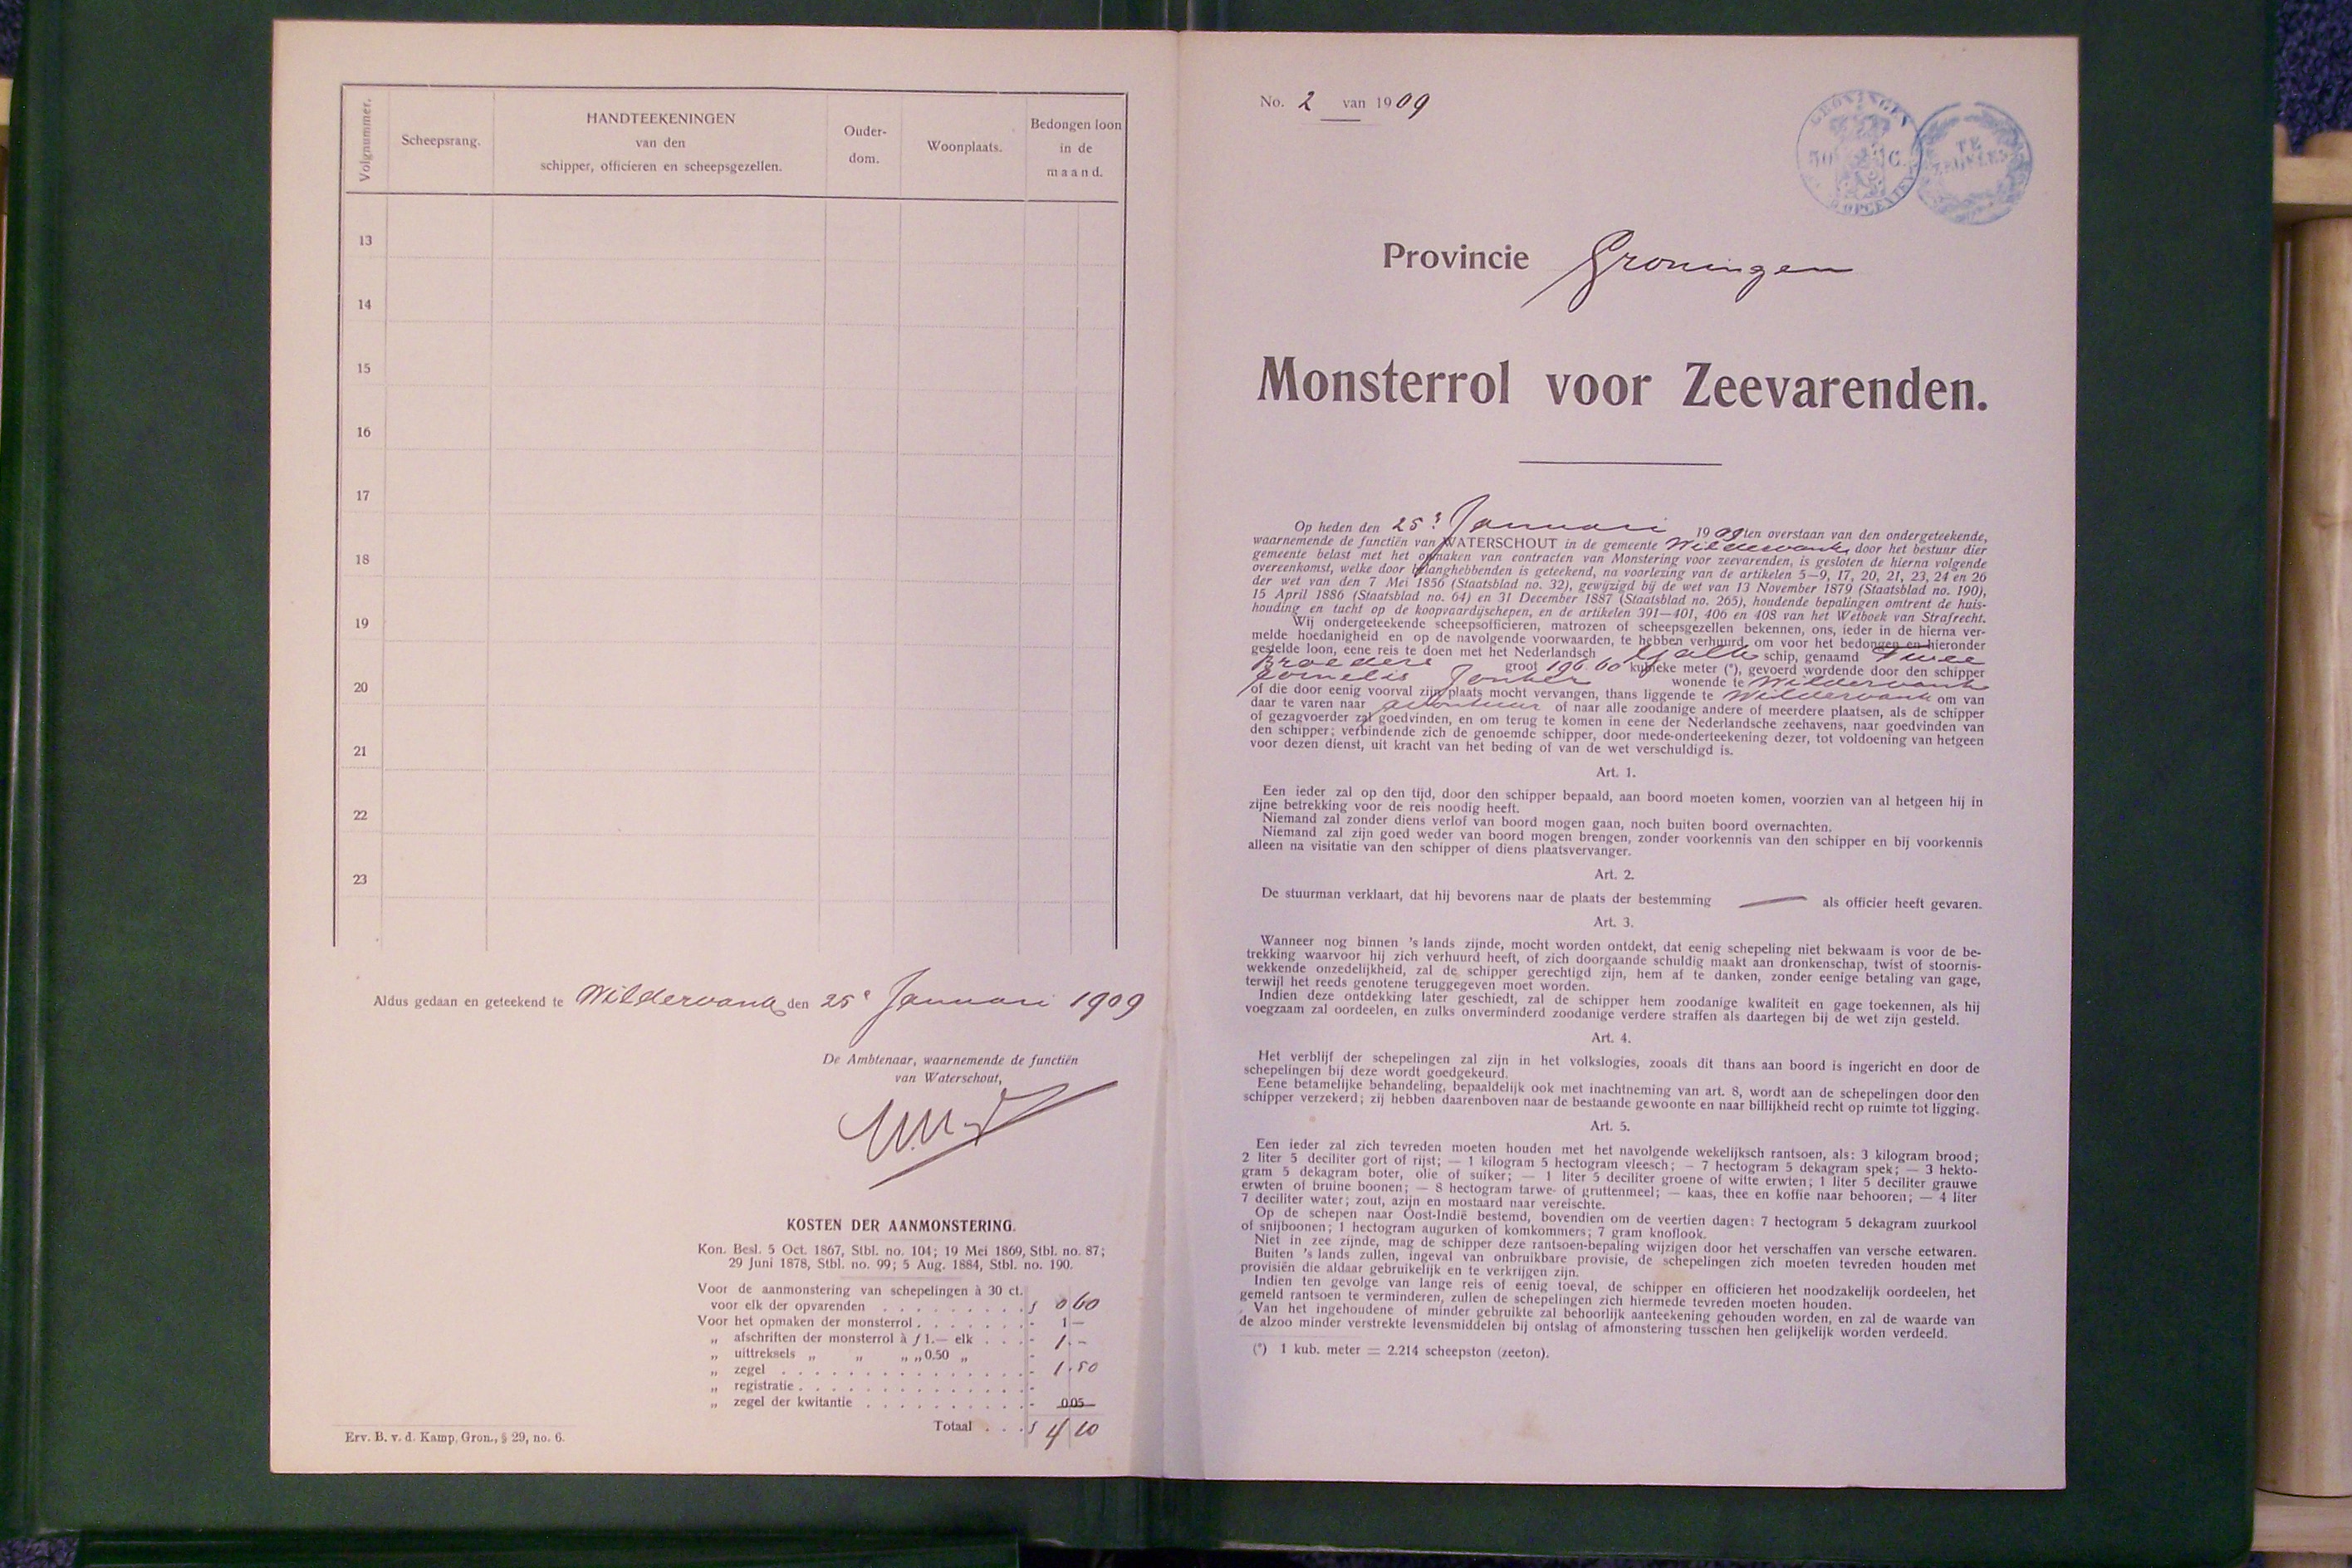 Volgnummer.
Scheepsrang.
HANDTEEKENINGEN
van den
schipper, officieren en scheepsgezellen.
Ouder-
dom.
Woonplaats.
Bedongen loon
in de
maand.
13
14
15
16
17
18
19
20
21
22
23
Aldus gedaan en geteekend te Wildervank den 25e Januari 1909
De Ambtenaar, waarnemende de functiën
van Waterschout,
KOSTEN DER AANMONSTERING.
Kon. Besl. 5 Oct. 1867, Stbl. no. 104; 19 Mei 1869, Stbl. no. 87;
29 Juni 1878, Stbl. no. 99; 5 Aug. 1884, Stbl. no. 190.
Voor de aanmonstering van schepelingen à 30 ct.
voor elk der opvarenden . . . . . . . . . f 0 60
Voor het opmaken der monsterrol . . . . . . . - 1 —
„ afschriften der monsterrol à f 1.— elk . . . - 1.-
„ uittreksels „ „ „ „ 0.50 „ -
„ zegel . . . . . . . . . . . . . . . - 1.50
„ registratie . . . . . . . . . . . . . -
„ zegel der kwitantie . . . . . . . . . . - 0 05
Totaal . . . f 4 10
Erv. B. v. d. Kamp, Gron., § 29, no. 6.
No. 2 van 1909
GRONINGEN
50 C.
OPCENTEN
TE
Provincie Groningen
Monsterrol voor Zeevarenden.
Op heden den 25e Januari 1909 ten overstaan van den ondergeteekende,
waarnemende de functiën van WATERSCHOUT in de gemeente Wildervank, door het bestuur dier
gemeente belast met het opmaken van contracten van Monstering voor zeevarenden, is gesloten de hierna volgende
overeenkomst, welke door belanghebbenden is geteekend, na voorlezing van de artikelen 5—9, 17, 20, 21, 23, 24 en 26
der wet van den 7 Mei 1856 (Staatsblad no. 32), gewijzigd bij de wet van 13 November 1879 (Staatsblad no. 190),
15 April 1886 (Staatsblad no. 64) en 31 December 1887 (Staatsblad no. 265), houdende bepalingen omtrent de huis-
houding en tucht op de koopvaardijschepen, en de artikelen 391—401, 406 en 408 van het Wetboek van Strafrecht.
Wij ondergeteekende scheepsofficieren, matrozen of scheepsgezellen bekennen, ons, ieder in de hierna ver-
melde hoedanigheid en op de navolgende voorwaarden, te hebben verhuurd, om voor het bedongen en hieronder
gestelde loon, eene reis te doen met het Nederlandsch Tjalk schip, genaamd Twee
Broeders groot 196.60 kubieke meter (*), gevoerd wordende door den schipper
Cornelis Jonker wonende te Wildervank
of die door eenig voorval zijn plaats mocht vervangen, thans liggende te Wildervank om van
daar te varen naar avontuur of naar alle zoodanige andere of meerdere plaatsen, als de schipper
of gezagvoerder zal goedvinden, en om terug te komen in eene der Nederlandsche zeehavens, naar goedvinden van
den schipper; verbindende zich de genoemde schipper, door mede-onderteekening dezer, tot voldoening van hetgeen
voor dezen dienst, uit kracht van het beding of van de wet verschuldigd is.
Art. 1.
Een ieder zal op den tijd, door den schipper bepaald, aan boord moeten komen, voorzien van al hetgeen hij in
zijne betrekking voor de reis noodig heeft.
Niemand zal zonder diens verlof van boord mogen gaan, noch buiten boord overnachten.
Niemand zal zijn goed weder van boord mogen brengen, zonder voorkennis van den schipper en bij voorkennis
alleen na visitatie van den schipper of diens plaatsvervanger.
Art. 2.
De stuurman verklaart, dat hij bevorens naar de plaats der bestemming — als officier heeft gevaren.
Art. 3.
Wanneer nog binnen 's lands zijnde, mocht worden ontdekt, dat eenig schepeling niet bekwaam is voor de be-
trekking waarvoor hij zich verhuurd heeft, of zich doorgaande schuldig maakt aan dronkenschap, twist of stoornis-
wekkende onzedelijkheid, zal de schipper gerechtigd zijn, hem af te danken, zonder eenige betaling van gage,
terwijl het reeds genotene teruggegeven moet worden.
Indien deze ontdekking later geschiedt, zal de schipper hem zoodanige kwaliteit en gage toekennen, als hij
voegzaam zal oordeelen, en zulks onverminderd zoodanige verdere straffen als daartegen bij de wet zijn gesteld.
Art. 4.
Het verblijf der schepelingen zal zijn in het volkslogies, zooals dit thans aan boord is ingericht en door de
schepelingen bij deze wordt goedgekeurd.
Eene betamelijke behandeling, bepaaldelijk ook met inachtneming van art. 8, wordt aan de schepelingen door den
schipper verzekerd; zij hebben daarenboven naar de bestaande gewoonte en naar billijkheid recht op ruimte tot ligging.
Art. 5.
Een ieder zal zich tevreden moeten houden met het navolgende wekelijksch rantsoen, als: 3 kilogram brood;
2 liter 5 deciliter gort of rijst; — 1 kilogram 5 hectogram vleesch; — 7 hectogram 5 dekagram spek; — 3 hekto-
gram 5 dekagram boter, olie of suiker; — 1 liter 5 deciliter groene of witte erwten; 1 liter 5 deciliter grauwe
erwten of bruine boonen; — 8 hectogram tarwe- of gruttenmeel; — kaas, thee en koffie naar behooren; — 4 liter
7 deciliter water; zout, azijn en mostaard naar vereischte.
Op de schepen naar Oost-Indië bestemd, bovendien om de veertien dagen: 7 hectogram 5 dekagram zuurkool
of snijboonen; 1 hectogram augurken of komkommers; 7 gram knoflook.
Niet in zee zijnde, mag de schipper deze rantsoen-bepaling wijzigen door het verschaffen van versche eetwaren.
Buiten 's lands zullen, ingeval van onbruikbare provisie, de schepelingen zich moeten tevreden houden met
provisiën die aldaar gebruikelijk en te verkrijgen zijn.
Indien ten gevolge van lange reis of eenig toeval, de schipper en officieren het noodzakelijk oordeelen, het
gemeld rantsoen te verminderen, zullen de schepelingen zich hiermede tevreden moeten houden.
Van het ingehoudene of minder gebruikte zal behoorlijk aanteekening gehouden worden, en zal de waarde van
de alzoo minder verstrekte levensmiddelen bij ontslag of afmonstering tusschen hen gelijkelijk worden verdeeld.
(*) 1 kub. meter = 2.214 scheepston (zeeton).